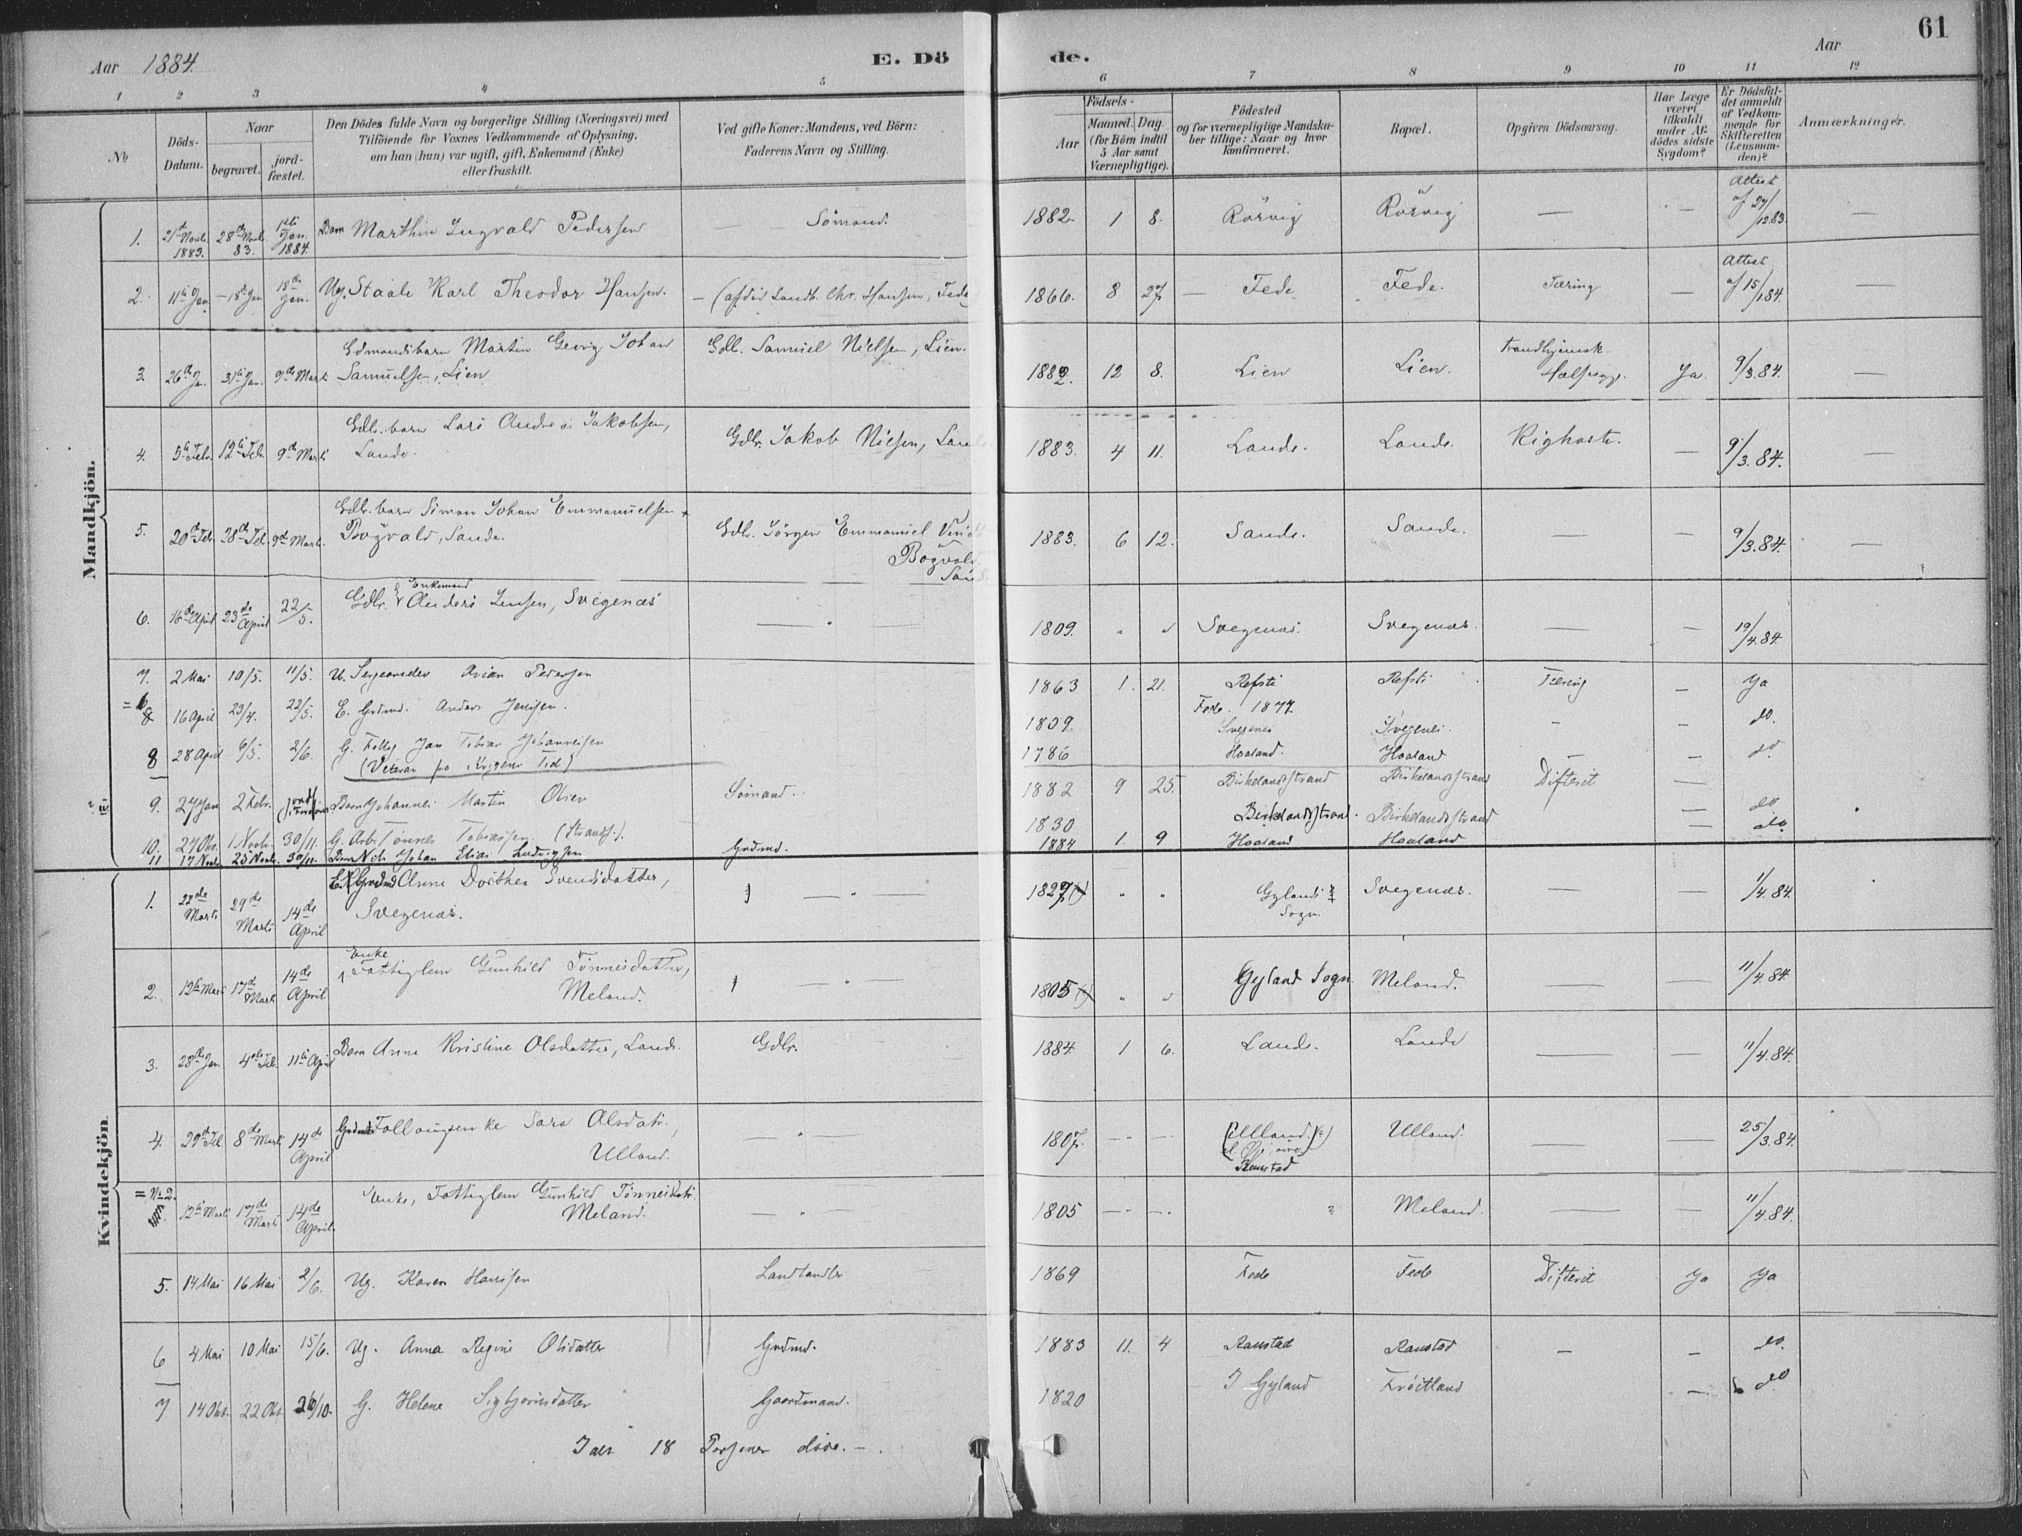 Aar 1884.
E. Dö de.
Aar
61
1 2 3 4 5 6 7 8 9 10 11 12
No
Döds-Datum.
Naar begravet. jordfæstet.
Den Dödes fulde Navn og borgerlige Stilling (Næringsvei) med
Tilföiende for Voxnes Vedkommende af Oplysning,
om han (hun) var ugift, gift, Enkemand (Enke)
eller fraskilt.
Ved gifte Koner: Mandens, ved Börn:
Faderens Navn og Stilling.
Födsels-
Aar Maaned. Dag
(for Börn indtil 5 Aar samt Værnepligtige).
Födested
og for værnepligtige Mandskaber tillige: Naar og hvor konfirmeret.
Bopæl.
Opgiven Dödsaarsag.
Har Læge været tilkaldt under Afdödes sidste Sygdom?
Er Dödsfaldet anmeldt af Vedkommende for Skifteretten (Lensmanden)?
Anmærkninger.
Mandkjön.
1. 21 Novb. 1883. 28 Novb. 83. 1ste Jan. 1884. Barn Marthin Ingvald Pedersen Sömand 1882. 1 8. Rörvig Rörvig — — Attest af 24/12.83 —
2. 11te Jan. 18de Jan. 18de Jan. Ug. Staale Karl Theodor Hansen. — (afdöd Landh. Chr. Hansen, Fede 1866. 8 27. — Fede Fede. Tæring — Attest af 15/1.84. —
3. 26de Ja. 31te Jan. 9de Mart. Edmandsbarn Martin Georg Johan Samuelsen, Lien Gdb. Samuel Nielsen, Lien. 1882. 12 8. Lien Lien. trondhjemsk Halssyg. Ja 9/3.84. —
4. 5te Feb. 12te Feb. 9de Marts Gdbr. barn Lars Andreas Jakobsen, Lande. Gdbr. Jakob Nilsen, Lan 1883. 4 11. Lande. Lande. Kighoste. — 9/3.84. —
5. 20de Feb. 28de Feb. 9de Mart. Gdbr. barn Simon Johan Emmanuelsen Bögvald, Sande. Gdbr. Jörgen Emmanuel Bögvald 1883. 6 12. Sande. Sande. — — 9/3.84. —
6. 16de April 23de April 22/5. Gdbr. Enkemand Anders Jensen, Svegenæs — " — 1809. " " Svegenæs. Svegenæs. — — 19/4.84.
7. 2 Mai 10/5. 11/5. U. Pedersen 1863 1. 21. Refsti Fede. 1877. Refsti Tæring — Ja
= 6 16 April 23/4. 22/5. E. Grdmd. Anders Jensen. 1809. Svegenes Svegenes. — — do.
8 28 April 6/5. 2/6. G. Jan Tobias Johannessen (Veteran fra Krigens Tid) 1786 Haaland. Haaland — do.
9. 27 Jan 2 Febr. Barn Johannes Martin Olsen Sömand. 1882 9 25. Birkelandsstrand Birkelandsstrand Difterit — do
10. 27 Okt. 1 Novb. 30/11. G. Arb. Tönnes Tobiassen. (Strandf.). 1830 Birkelandsstrand. Birkelandsstrand — do
11 17 Novb. 25 Novb. 30/11. Barn Nils Johan Elias Ludvigsen Grdmd. 1884 1. 9 Haaland Haaland
Kvindekjön
1. 22de Marts 29de Marts 14de April E. Grdmd Anne Dorthea Svendsdatter, Svegenæs. — " — 1827 " " Gylands Sogn Svegenæs. — — 1/4.84.
2. 12te Mart. 17de Mart. 14de April Enke Fattiglem Gunhild Tönnesdatter, Meland. — " — 1805 " " Gyland Sogn Meland. — — 11/4.84
3. 28de Jan. 4de Feb. 11te April Barn Anne Kristine Olsdatter, Lande. Gdbr. 1884. 1 6. Lande. Lande — — 11/4.84.
4. 29de Feb. 8de Marts 14de April Follougsenke Sara Olsdatr., Ulland. — " — 1807. — — (Ulland.?) Ramstad Ulland. — — 25/3.84.
= No 2. 12te Mart. 17de Marts 14de April. Enke, Fattiglem Gunhild Tönnesdatr. Meland. — " — 1805 — — " Meland. — — 11/4.84.
5. 14 Mai 16 Mai 2/6. Ug. Karen Hansen Landhandler 1869 Fede Fede Difterit Ja Ja
6 4 Mai 10 Mai 15/6. Ug. Anna Regine Olsdatter Grdmd. 1883 11. 4 Ramstad Ramstad — — do.
7 14 Okt. 22 Okt. 26/10. G. Helene Sigbjörnsdatter Gaardmand. 1820 I Gyland Fröitland — do
I alt 18 Personer döde. —